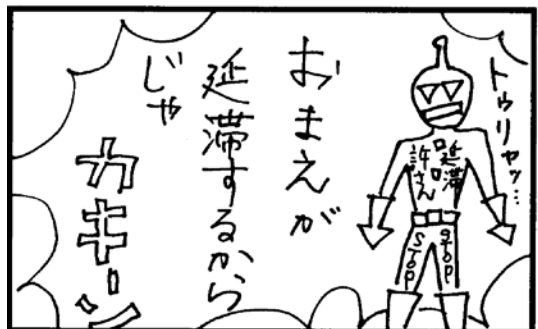 トゥリャッ…
延滞
許さん
STOP
STOP
おまえが
延滞するから
じゃ
カキーン